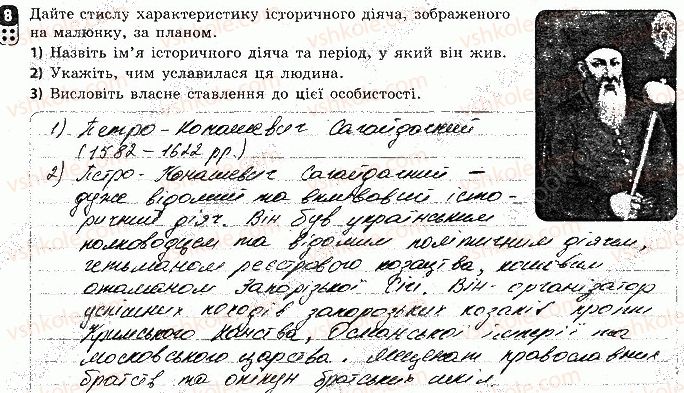 8 Дайте стислу характеристику історичного діяча, зображеного
на малюнку, за планом.
1) Назвіть ім'я історичного діяча та період, у який він жив.
2) Укажіть, чим уславилася ця людина.
3) Висловіть власне ставлення до цієї особистості.
1) Петро-Конашевич Сагайдачний
(1582 – 1622 рр.)
2) Петро-Конашевич Сагайдачний –
дуже відомий та впливовий істо-
ричний діяч. Він був українським
полководцем та відомим політичним діячем,
гетьманом реєстрового козацтва, кошовим
отаманом Запорізької Січі. Він- організатор
успішних походів запорозьких козаків проти
Кримського Ханства, Османської імперії та
Московського царства. Меценат православних
братств та опікун братських шкіл.